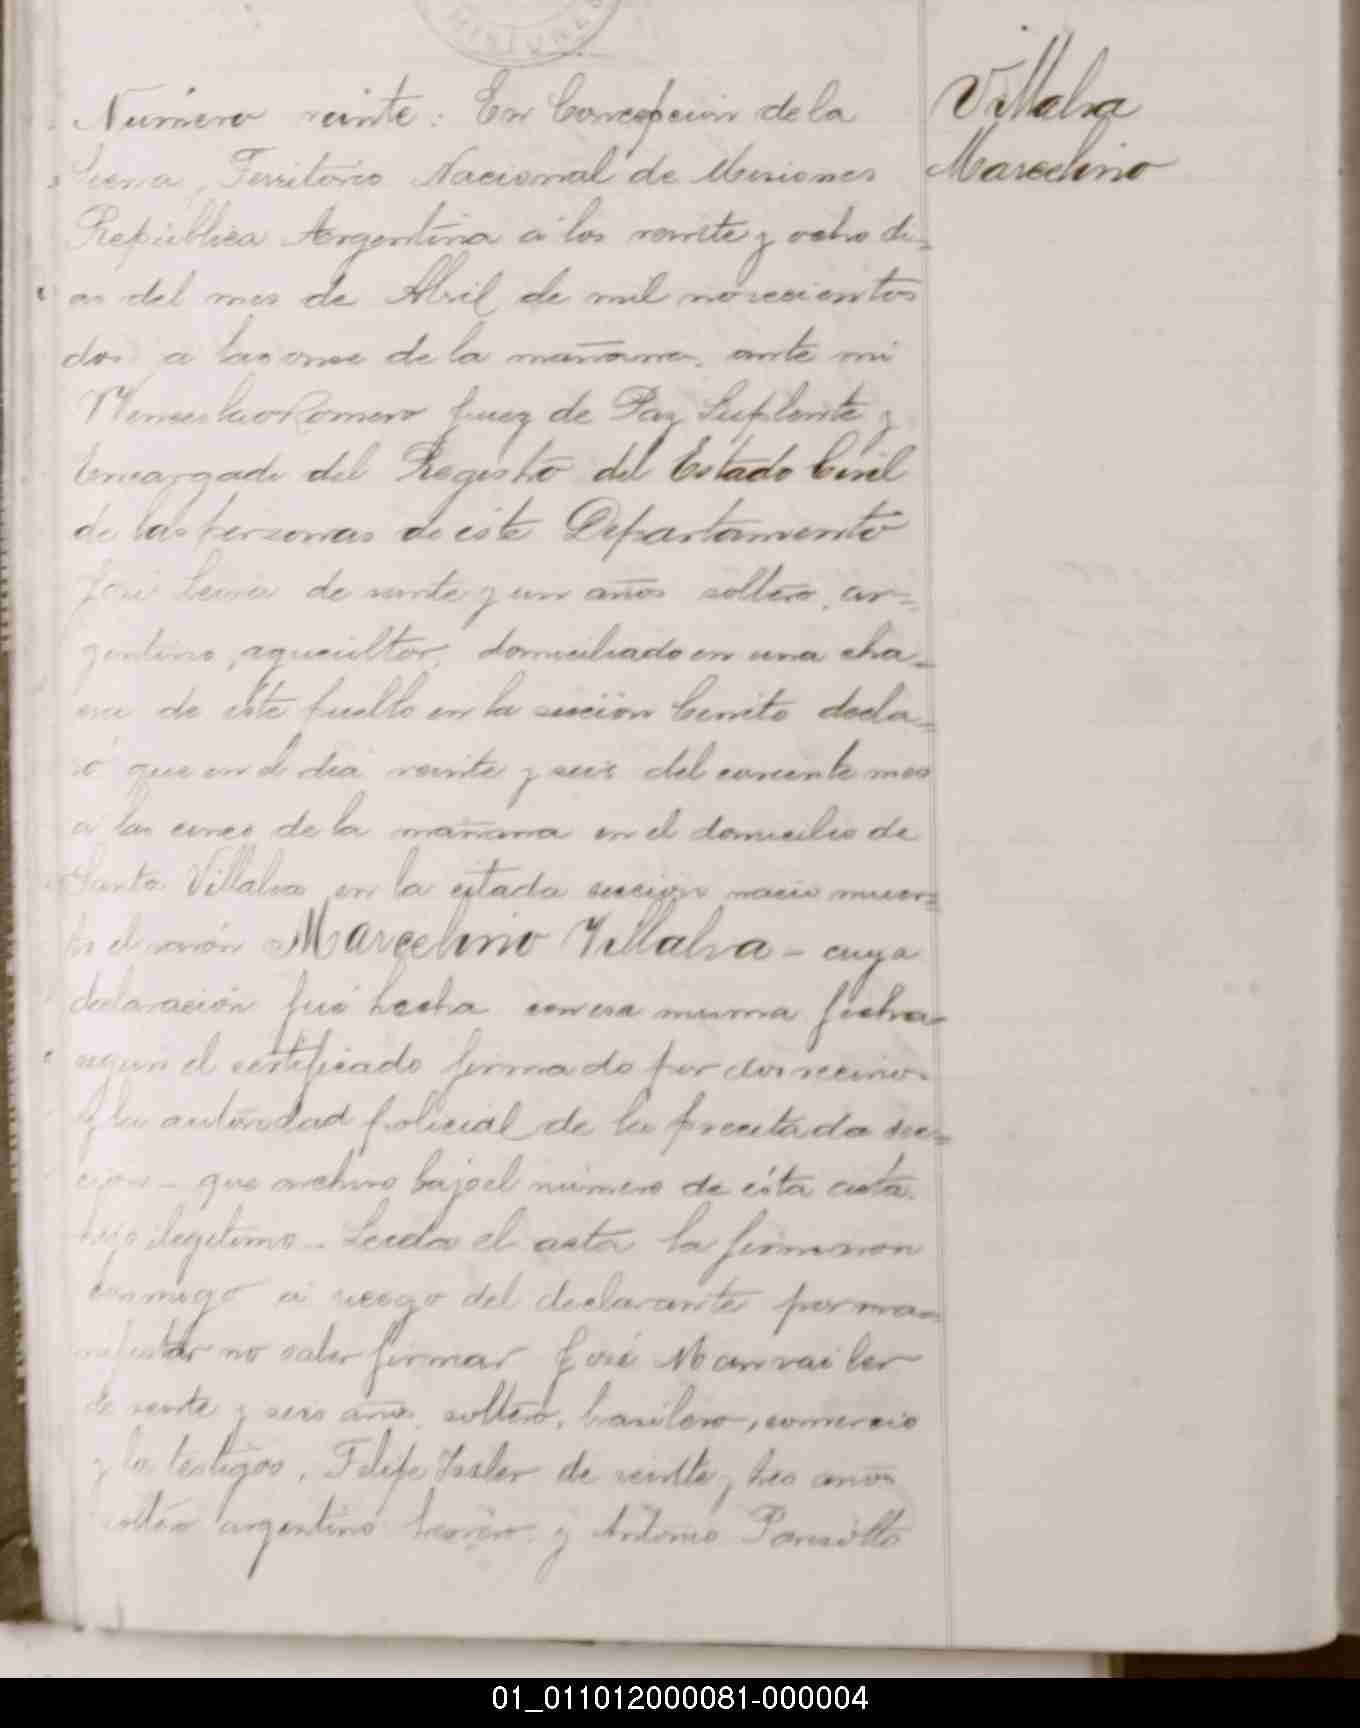 MISIONES
Villalva
Marcelino
Número veinte: En Concepcion de la
Sierra, Territorio Nacional de Misiones
República Argentina á los veinte y ocho di=
as del mes de Abril de mil novecientos
dos a las once de la mañana, ante mi
Wenceslao Romero Juez de Paz Suplente y
Encargado del Registro del Estado Civil
de las personas de este Departamento
José de veinte y un años soltero, ar=
gentino, agricultor, domiciliado en una cha=
cra de este pueblo en la sección Cerrito decla=
ró que en el dia veinte y seis del corriente mes
a las cinco de la mañana en el domicilio de
Santa Villalva en la citada seccion nació muer=
to el varón Marcelino Villalva - cuya
declaración fué hecha con esa misma fecha
segun el certificado firmado por dos vecinos
y la autoridad policial de la precitada sec=
ción - que archivo bajo el número de ésta acta.
hijo ilegitimo. Leida el acta la firmaron
conmigo á ruego del declarante por ma=
nifestar no saber firmar José
de veinte y seis años, soltero, brasilero, comercio
y los testigos, Felipe de veinte y tres años
soltero argentino y Antonio
01_011012000081-000004